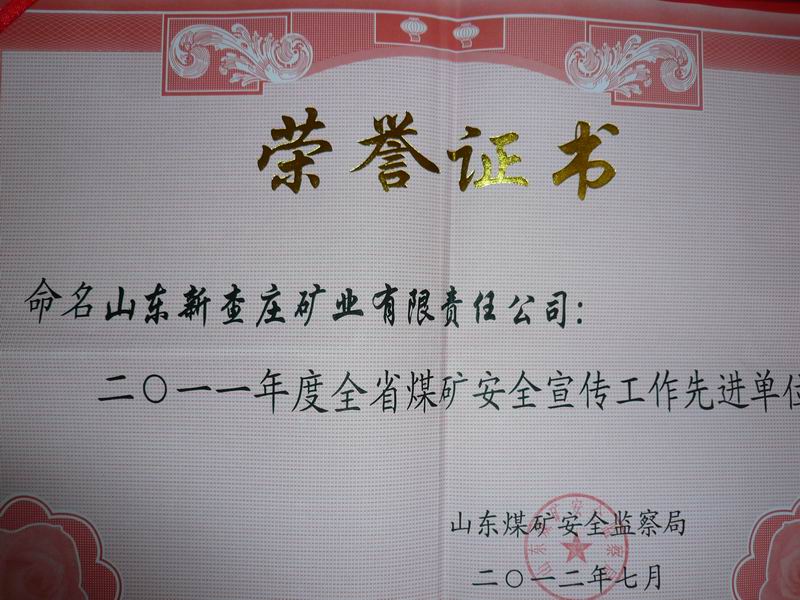 荣誉证书
命名山东新查庄矿业有限责任公司：
二〇一一年度全省煤矿安全宣传工作先进单位
山东煤矿安全监察局
二〇一二年七月